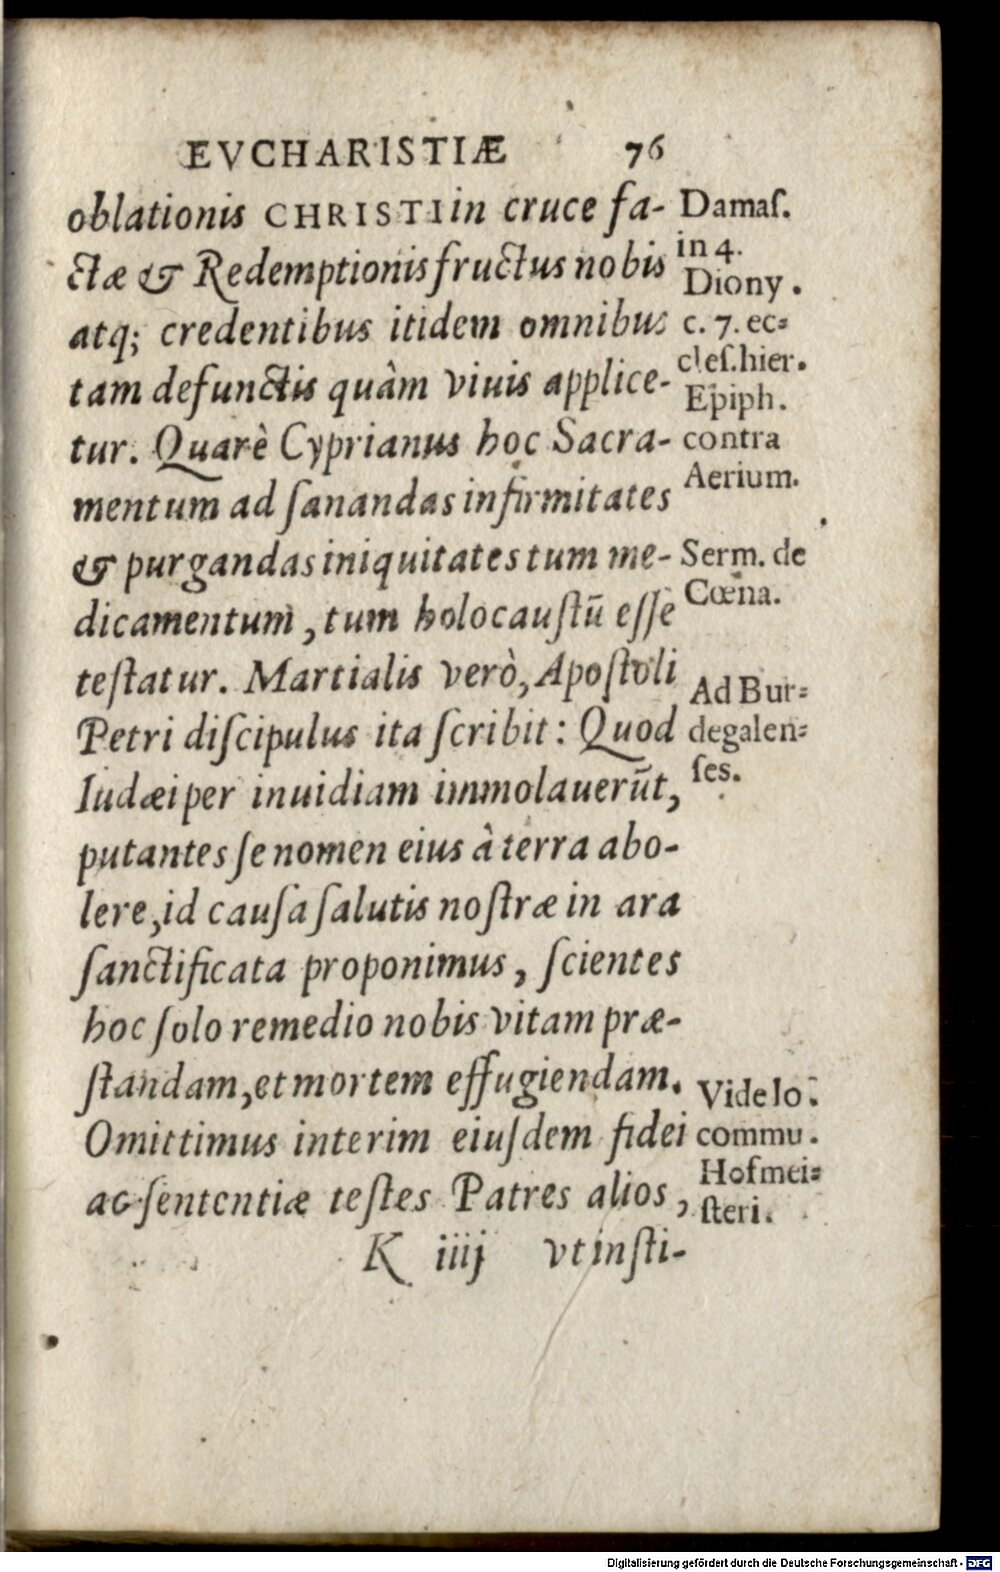 EVCHARISTIÆ 76
oblationis CHRISTI in cruce fa-
ctæ & Redemptionis fructus nobis
atq; credentibus itidem omnibus
tam defunctis quàm viuis applice-
tur. Quarè Cyprianus hoc Sacra-
mentum ad ſanandas infirmitates
& purgandas iniquitates tum me-
dicamentum, tum holocauſtū eſſe
teſtatur. Martialis verò, Apoſtoli
Petri diſcipulus ita ſcribit: Quod
Iudæi per inuidiam immolauerūt,
putantes ſe nomen eius à terra abo-
lere, id cauſa ſalutis noſtræ in ara
ſanctificata proponimus, ſcientes
hoc ſolo remedio nobis vitam præ-
ſtandam, et mortem effugiendam.
Omittimus interim eiuſdem fidei
ac ſententiæ teſtes Patres alios,
K iiij vt inſti-
Damaſ.
in 4.
Diony.
c. 7. ec=
cleſ. hier.
Epiph.
contra
Aerium.
Serm. de
Cœna.
Ad Bur=
degalen=
ſes.
Vide lo.
commu.
Hofmei=
ſteri.
Digitalisierung gefördert durch die Deutsche Forschungsgemeinschaft - DFG